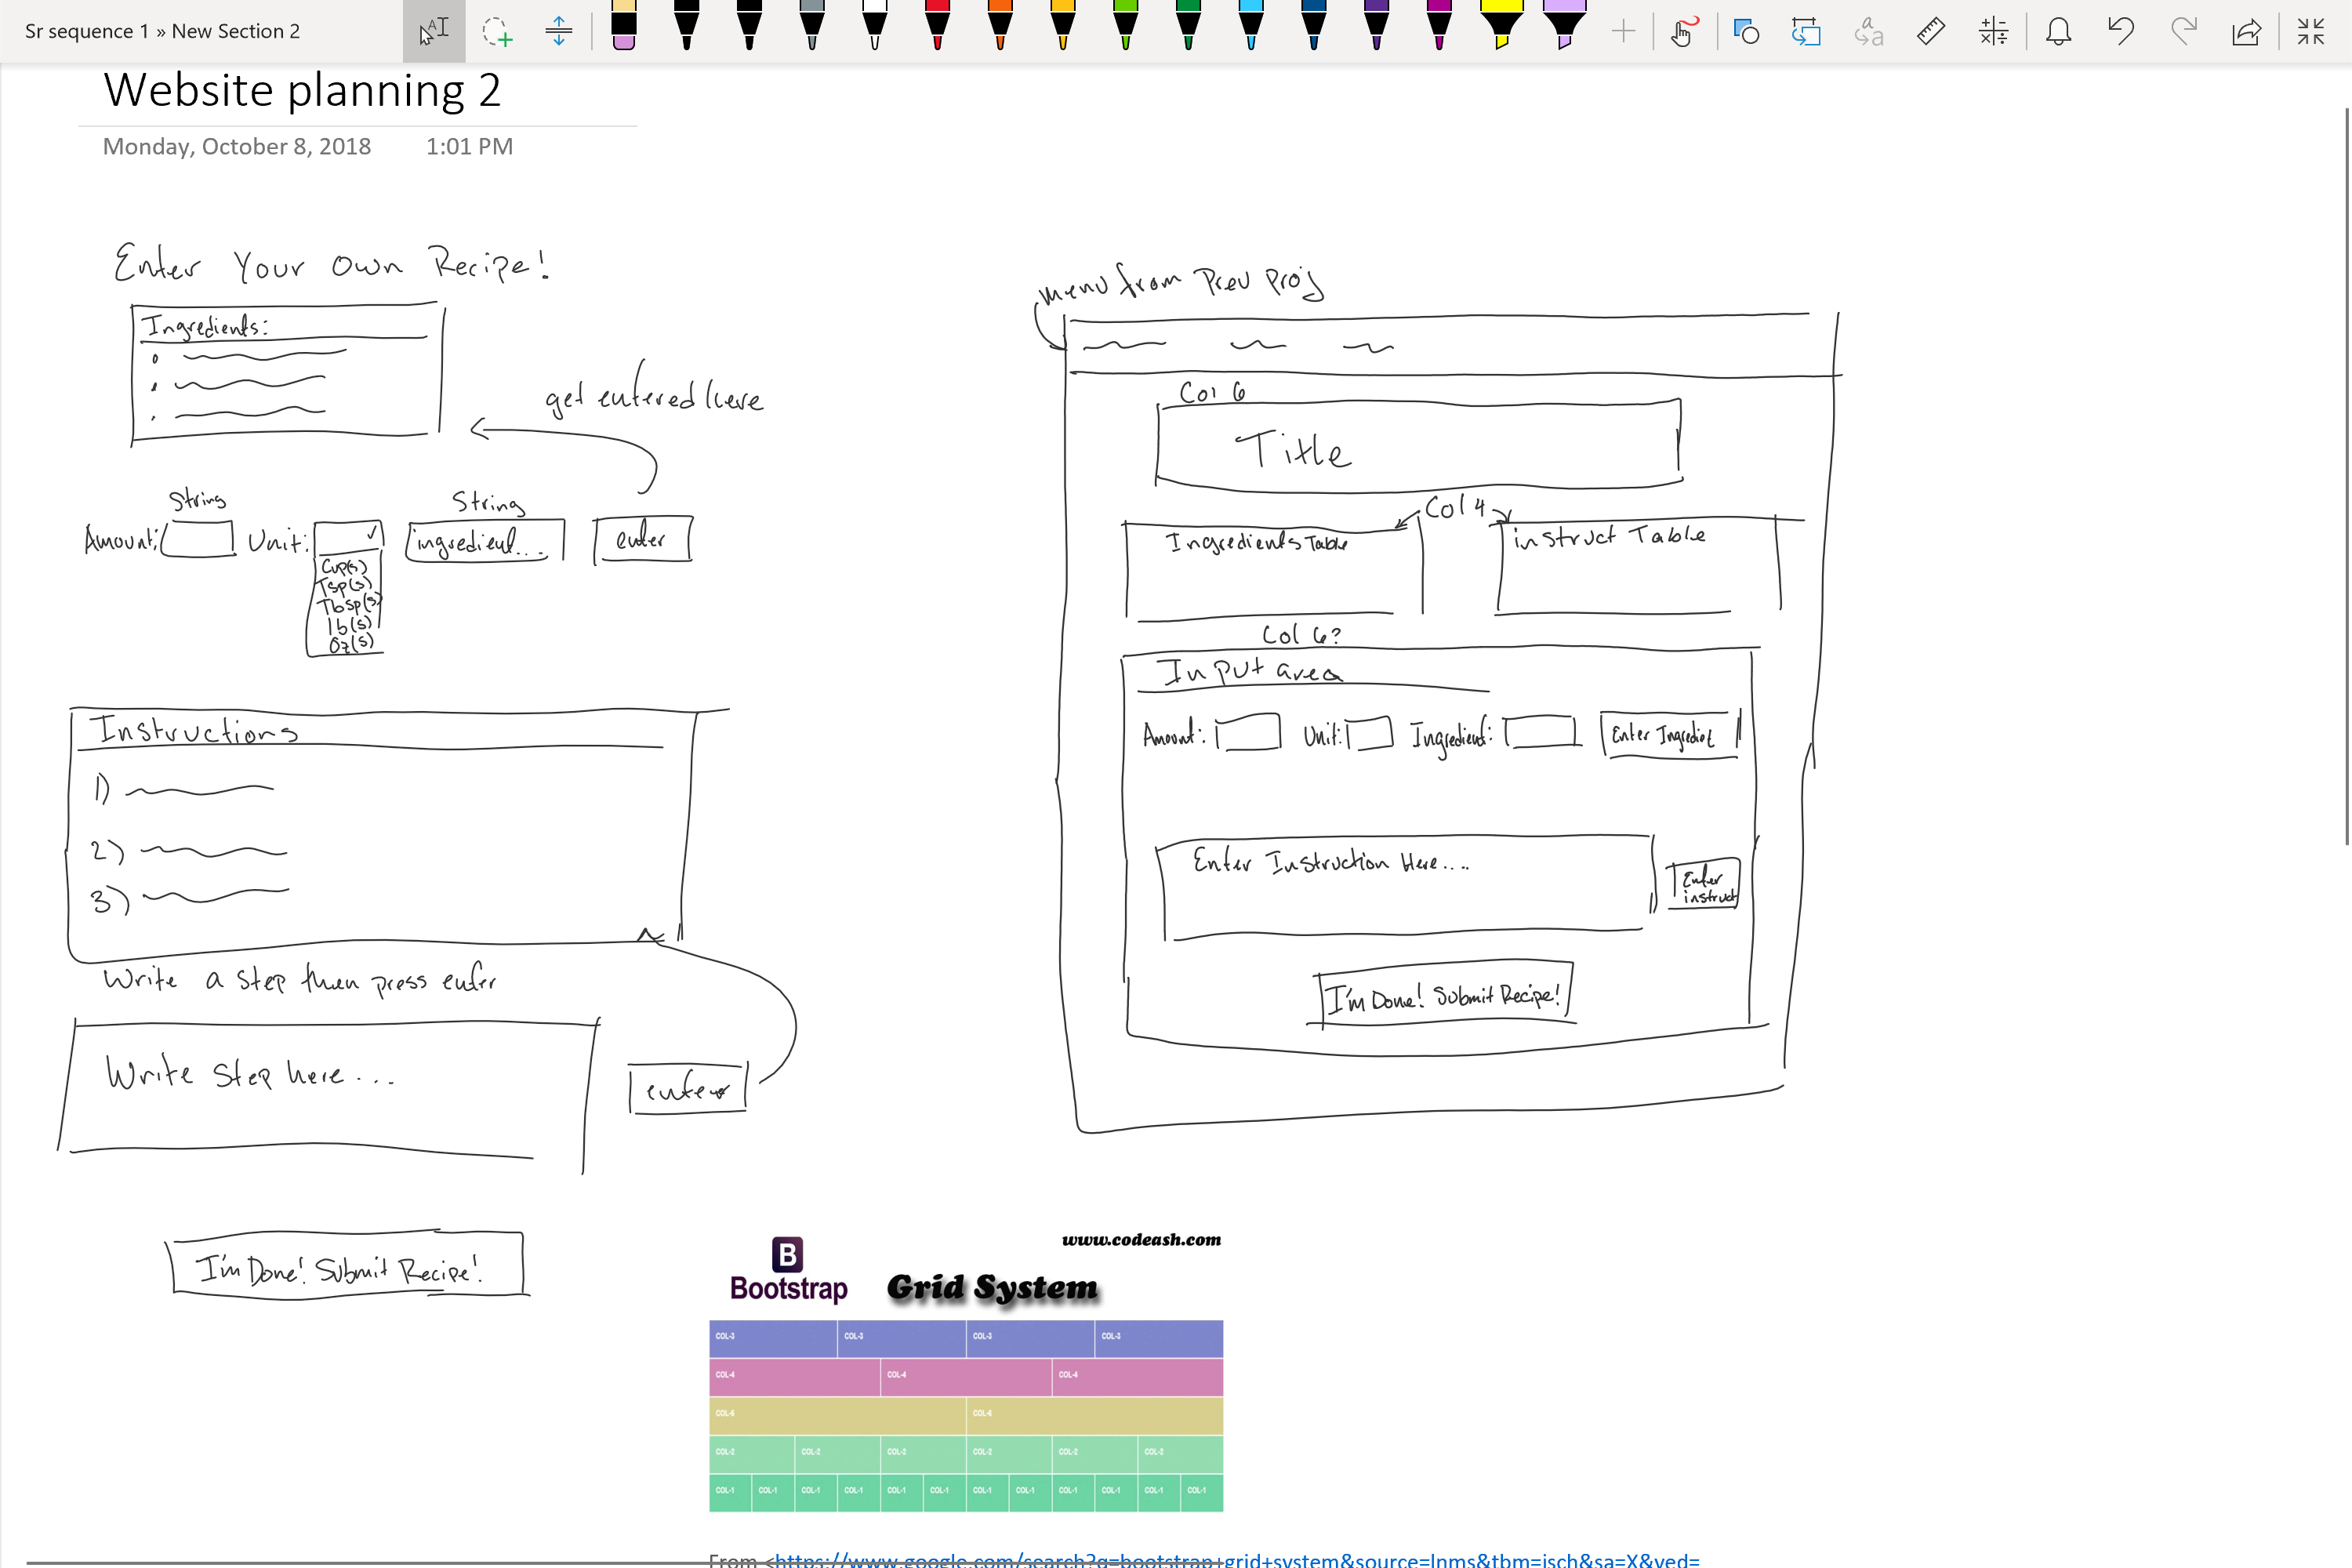 Sr sequence 1 » New Section 2
Website planning 2
Monday, October 8, 2018 1:01 PM
Enter Your Own Recipe!
Ingredients:
get entered here
String
String
Amount:
Unit:
ingredient...
enter
Cup(s)
Tsp(s)
Tbsp(s)
lb(s)
Oz(s)
Instructions
1)
2)
3)
Write a step then press enter
Write Step here...
enter
I'm Done! Submit Recipe!
menu from Prev Proj
Col 6
Title
Col 4
Ingredients Table
instruct Table
Col 6?
Input area
Amount:
Unit:
Ingredient:
Enter Ingrediet
Enter Instruction Here....
Enter
instruct
I'm Done! Submit Recipe!
www.codeash.com
B
Bootstrap
Grid System
COL-3 COL-3 COL-3 COL-3
COL-4 COL-4 COL-4
COL-6 COL-6
COL-2 COL-2 COL-2 COL-2 COL-2 COL-2
COL-1 COL-1 COL-1 COL-1 COL-1 COL-1 COL-1 COL-1 COL-1 COL-1 COL-1 COL-1
From <https://www.google.com/search?q=bootstrap+grid+system&source=lnms&tbm=isch&sa=X&ved=